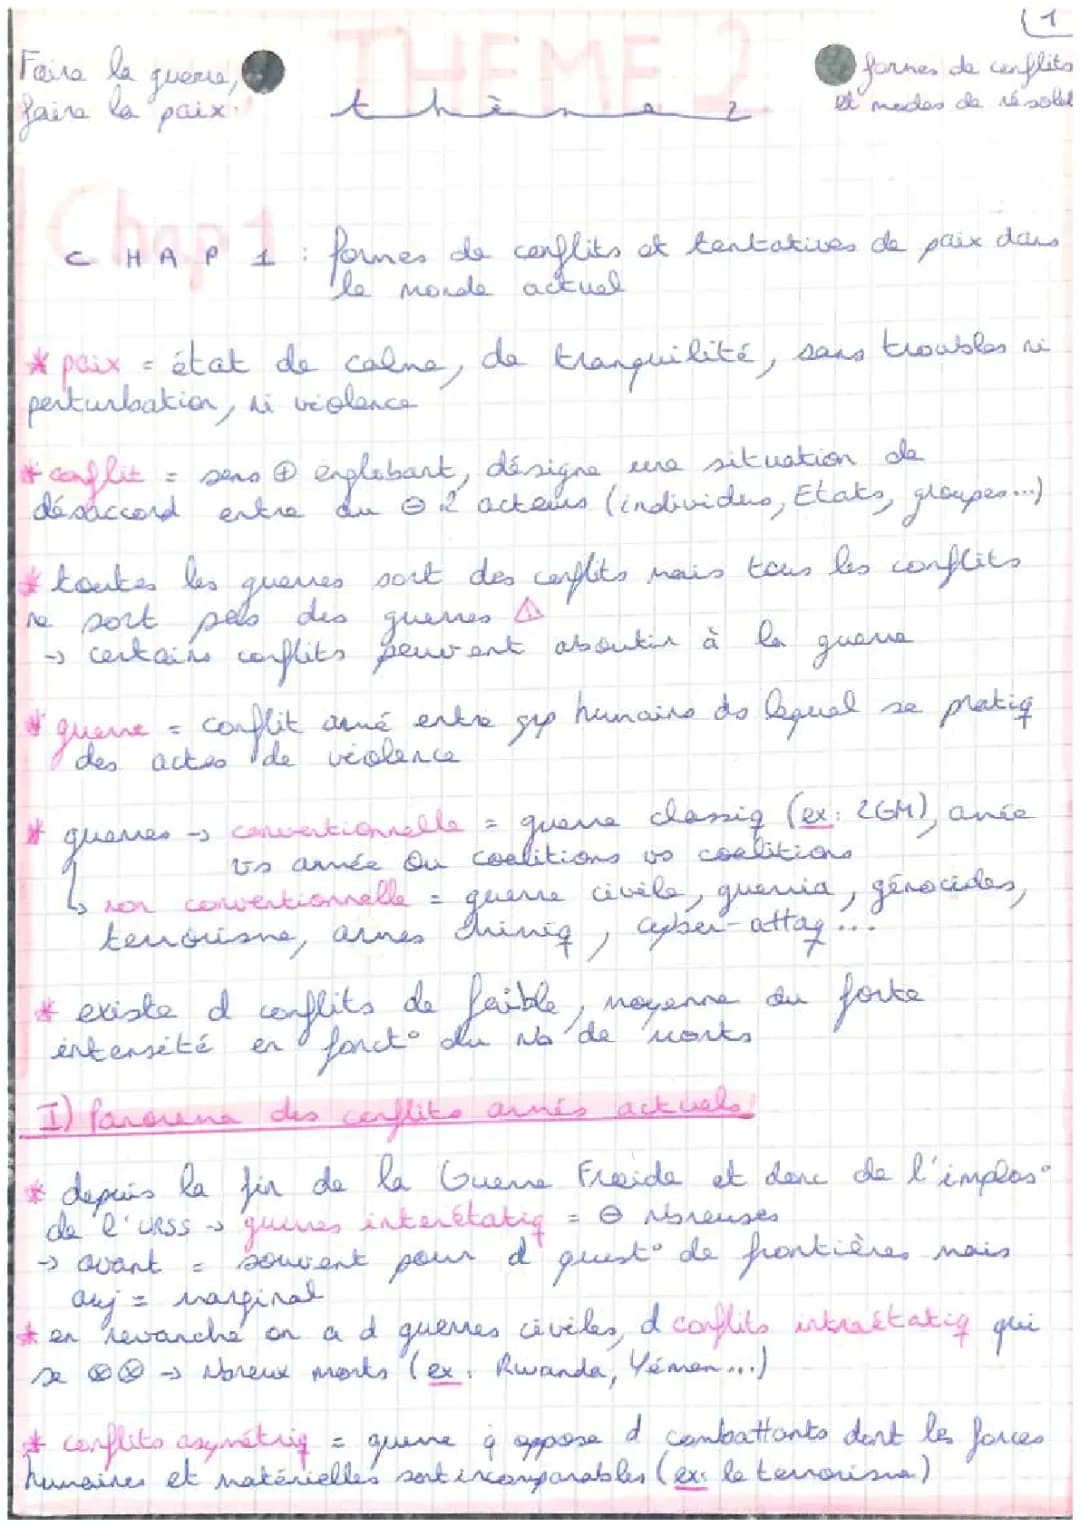 (1
Faire la guerre,
faire la paix.
THEME 2
thème 2
formes de conflits
et modes de résolut
Chap 1
CHAP 1 : formes de conflits et tentatives de paix dans
le monde actuel
* paix = état de calme, de tranquilité, sans troubles ni
perturbation, ni violence
* conflit = sens ⊕ englobant, désigne une situation de
désaccord entre au ⊖ 2 acteurs (individus, Etats, groupes...)
* toutes les guerres sont des conflits mais tous les conflits
ne sont pas des guerres ⚠
→ certains conflits peuvent aboutir à la guerre
* guerre = conflit armé entre grp humains ds lequel se pratiq
des actes de violence
* guerres → conventionnelle = guerre classiq (ex: 2GM), armée
vs armée ou coalitions vs coalitions
↳ non conventionnelle = guerre civile, guerria, génocides,
terrorisme, armes chimiq, cyber-attaq...
* existe d conflits de faible, moyenne ou forte
intensité en fonct° du nb de morts
I) Panorama des conflits armés actuels
* depuis la fin de la Guerre Froide et donc de l'implos°
de l'URSS → guerres interétatiq = ⊖ nbreuses
→ avant = souvent pour d quest° de frontières mais
auj = marginal
* en revanche on a d guerres civiles, d conflits intraétatiq qui
se ⊗⊗ → nbreux morts (ex: Rwanda, Yémen...)
* conflits asymétriq = guerre q oppose d combattants dont les forces
humaines et matérielles sont incomparables (ex: le terrorisme)